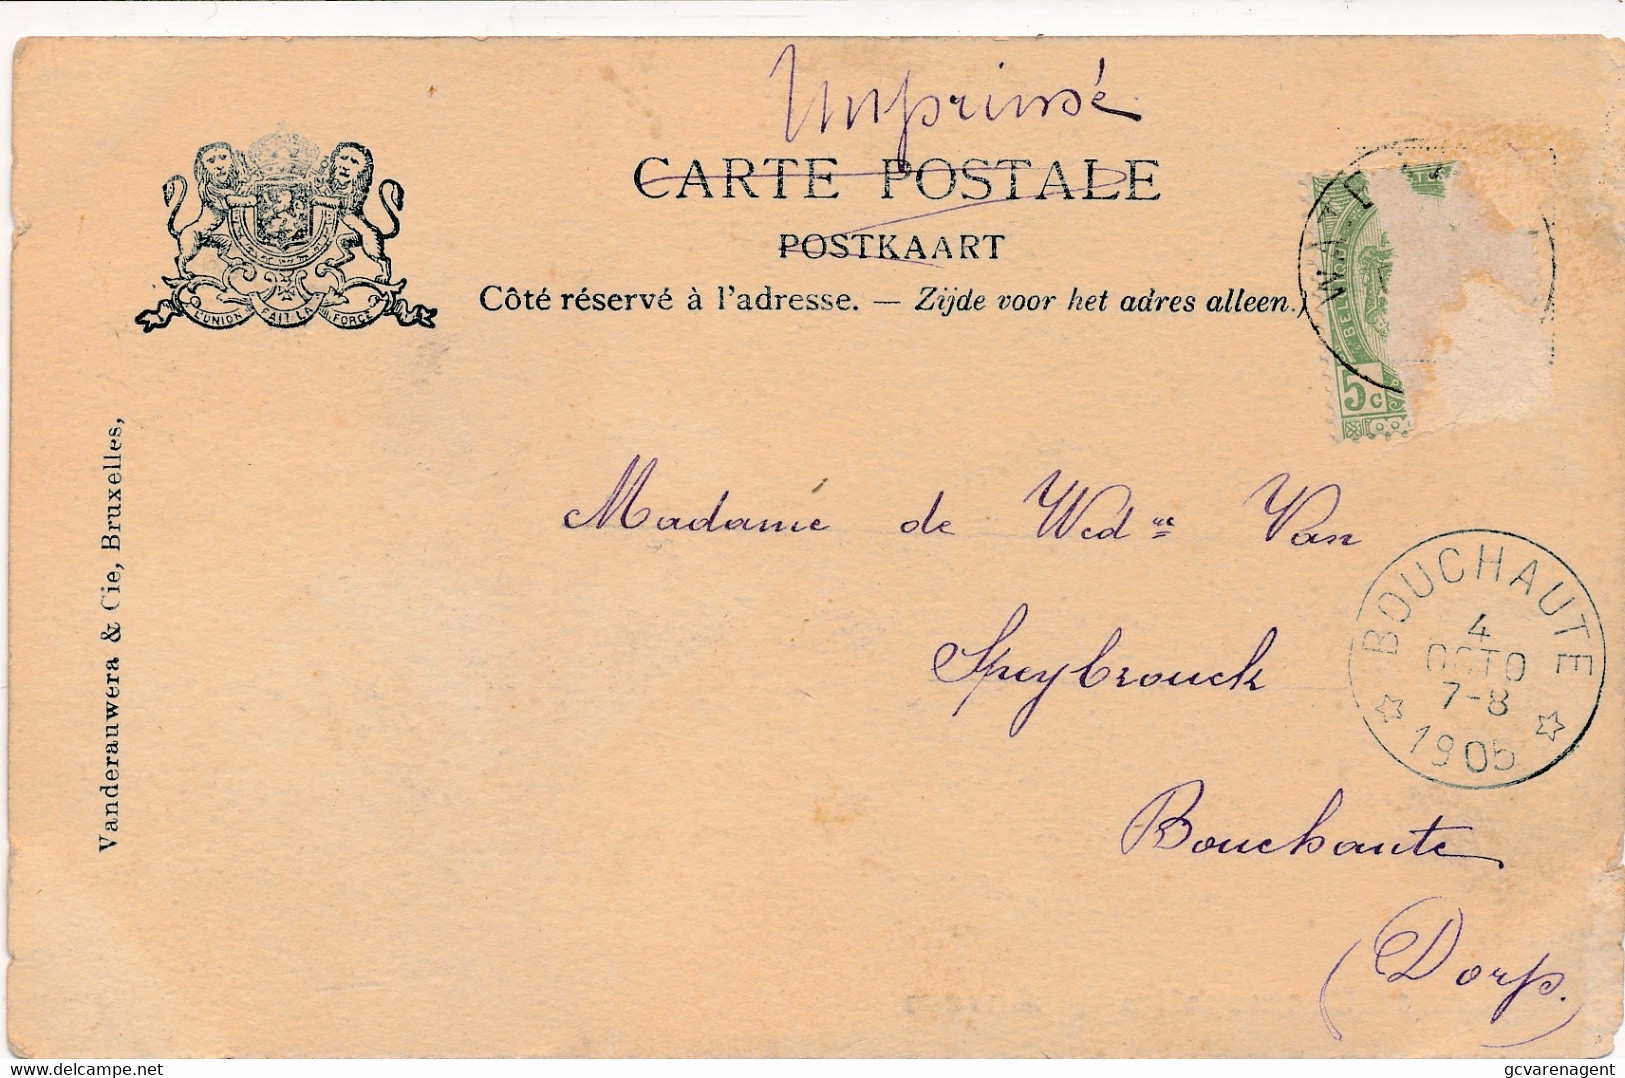 Imprimé
CARTE POSTALE
POSTKAART
Côté réservé à l'adresse. — Zijde voor het adres alleen.
L'UNION FAIT LA FORCE
5c
Vanderauwera & Cie, Bruxelles,
Madame de Wed ue Van
Speybrouck
BOUCHAUTE
4
OCTO
7-8
1905
Bouchaute
(Dorp.)
delcampe.net
gcvarenagent